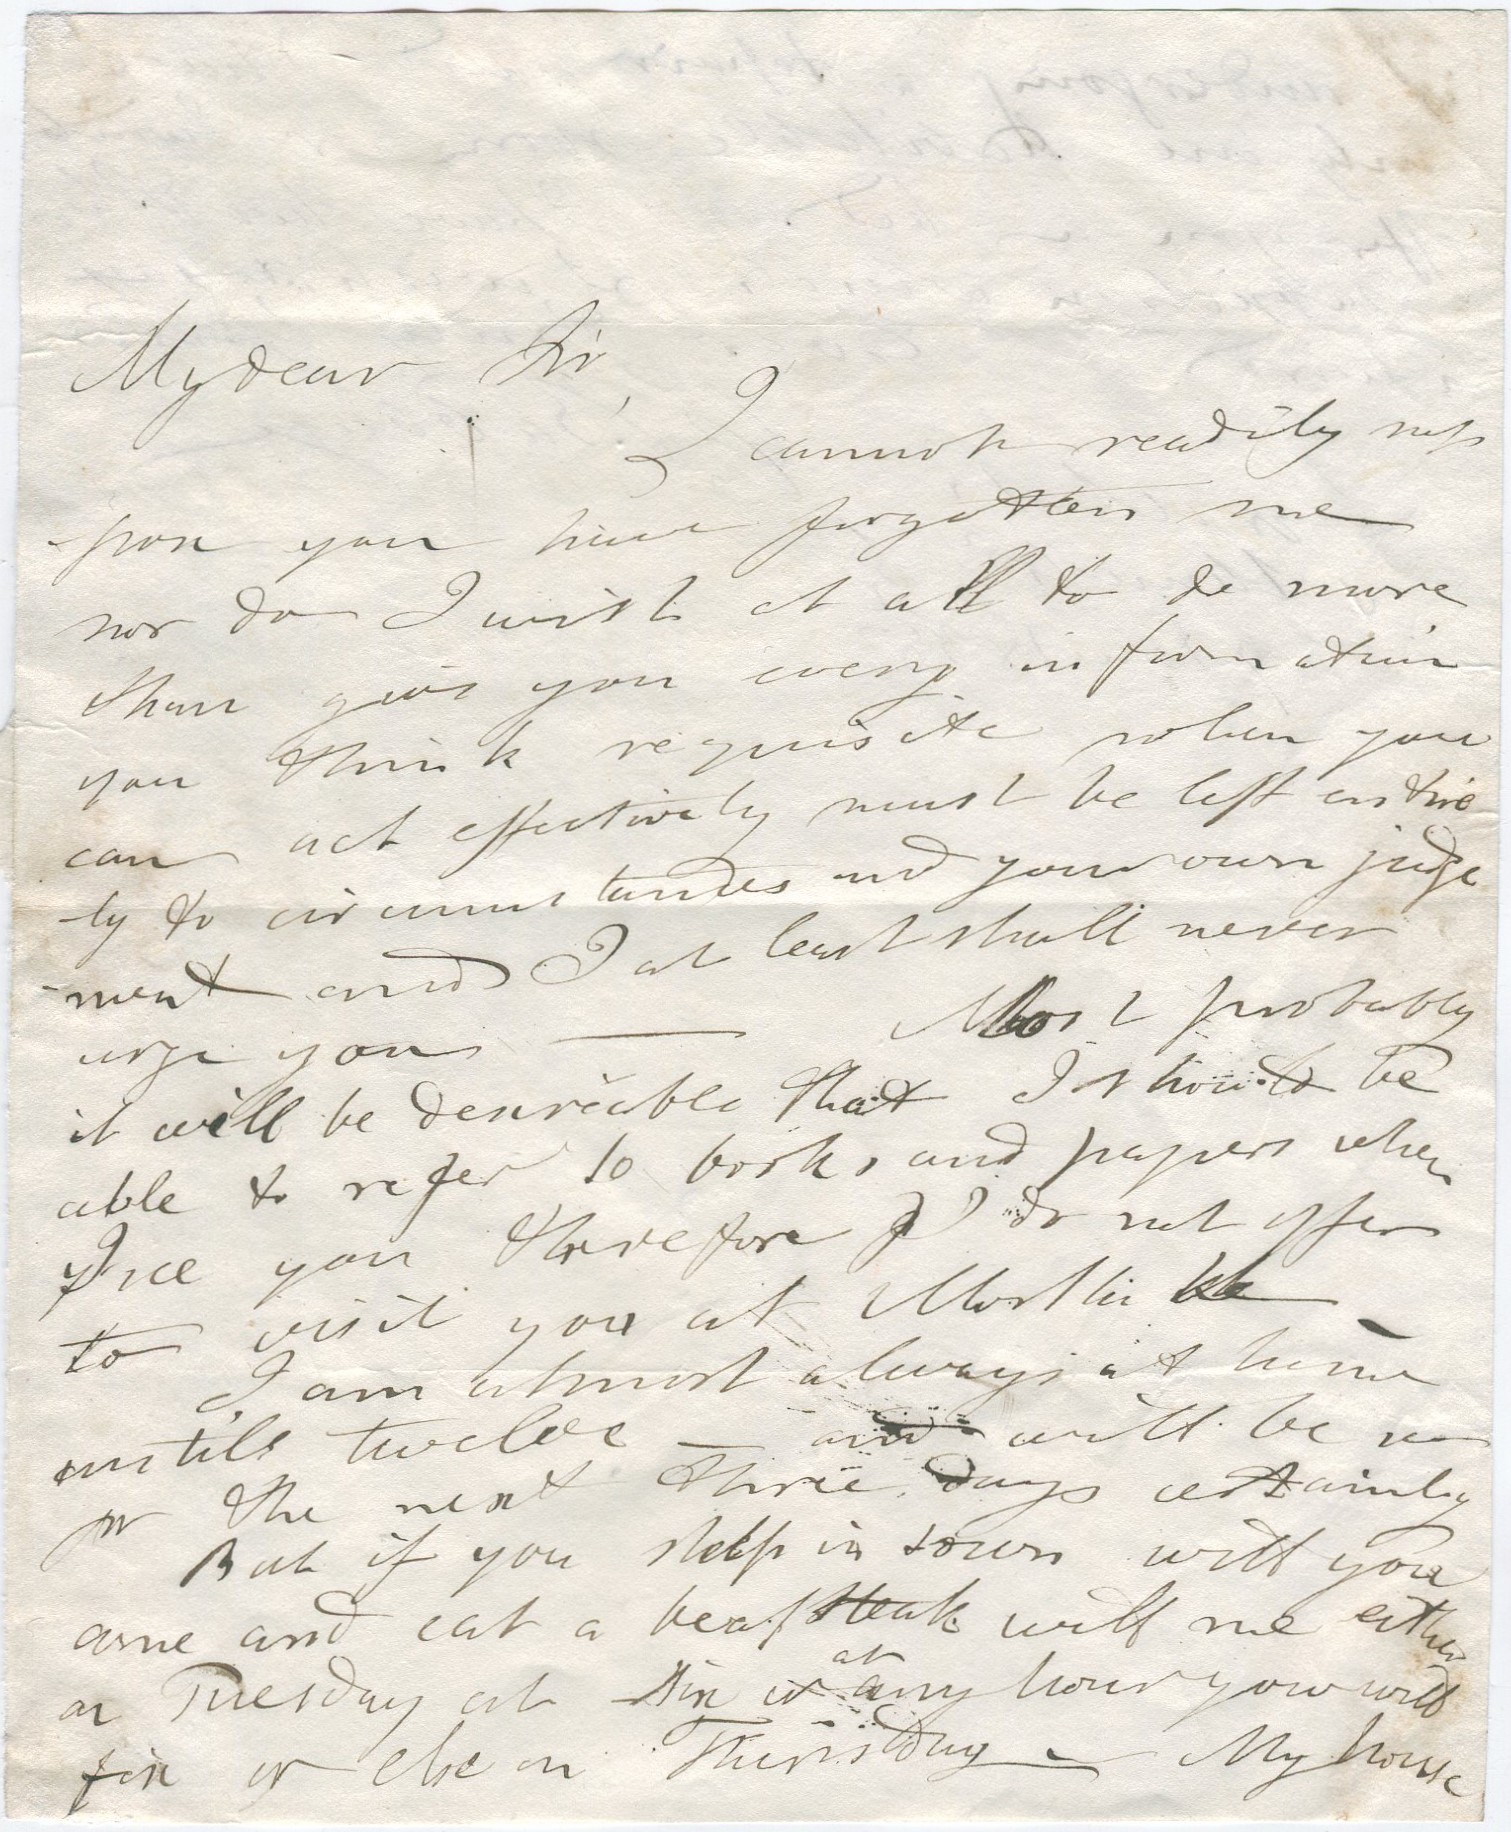 My dear Sir,
I cannot readily sup
-pose you have forgotten me
nor do I wish at all to do more
than give you every information
you think requisite when you
can act effectively must be left entire
-ly to circumstances and your own judge
-ment and I at least shall never
urge you — Most probably
it will be desireable that I should be
able to refer to books and papers when
I see you therefore I do not offer
to visit you at
I am almost always at home
until twelve — and will be so
for the next three days certainly
But if you sleep in town will you
come and eat a beefsteak with me either
on Tuesday at six or at any hour you will
fix or else on Thursday — My house